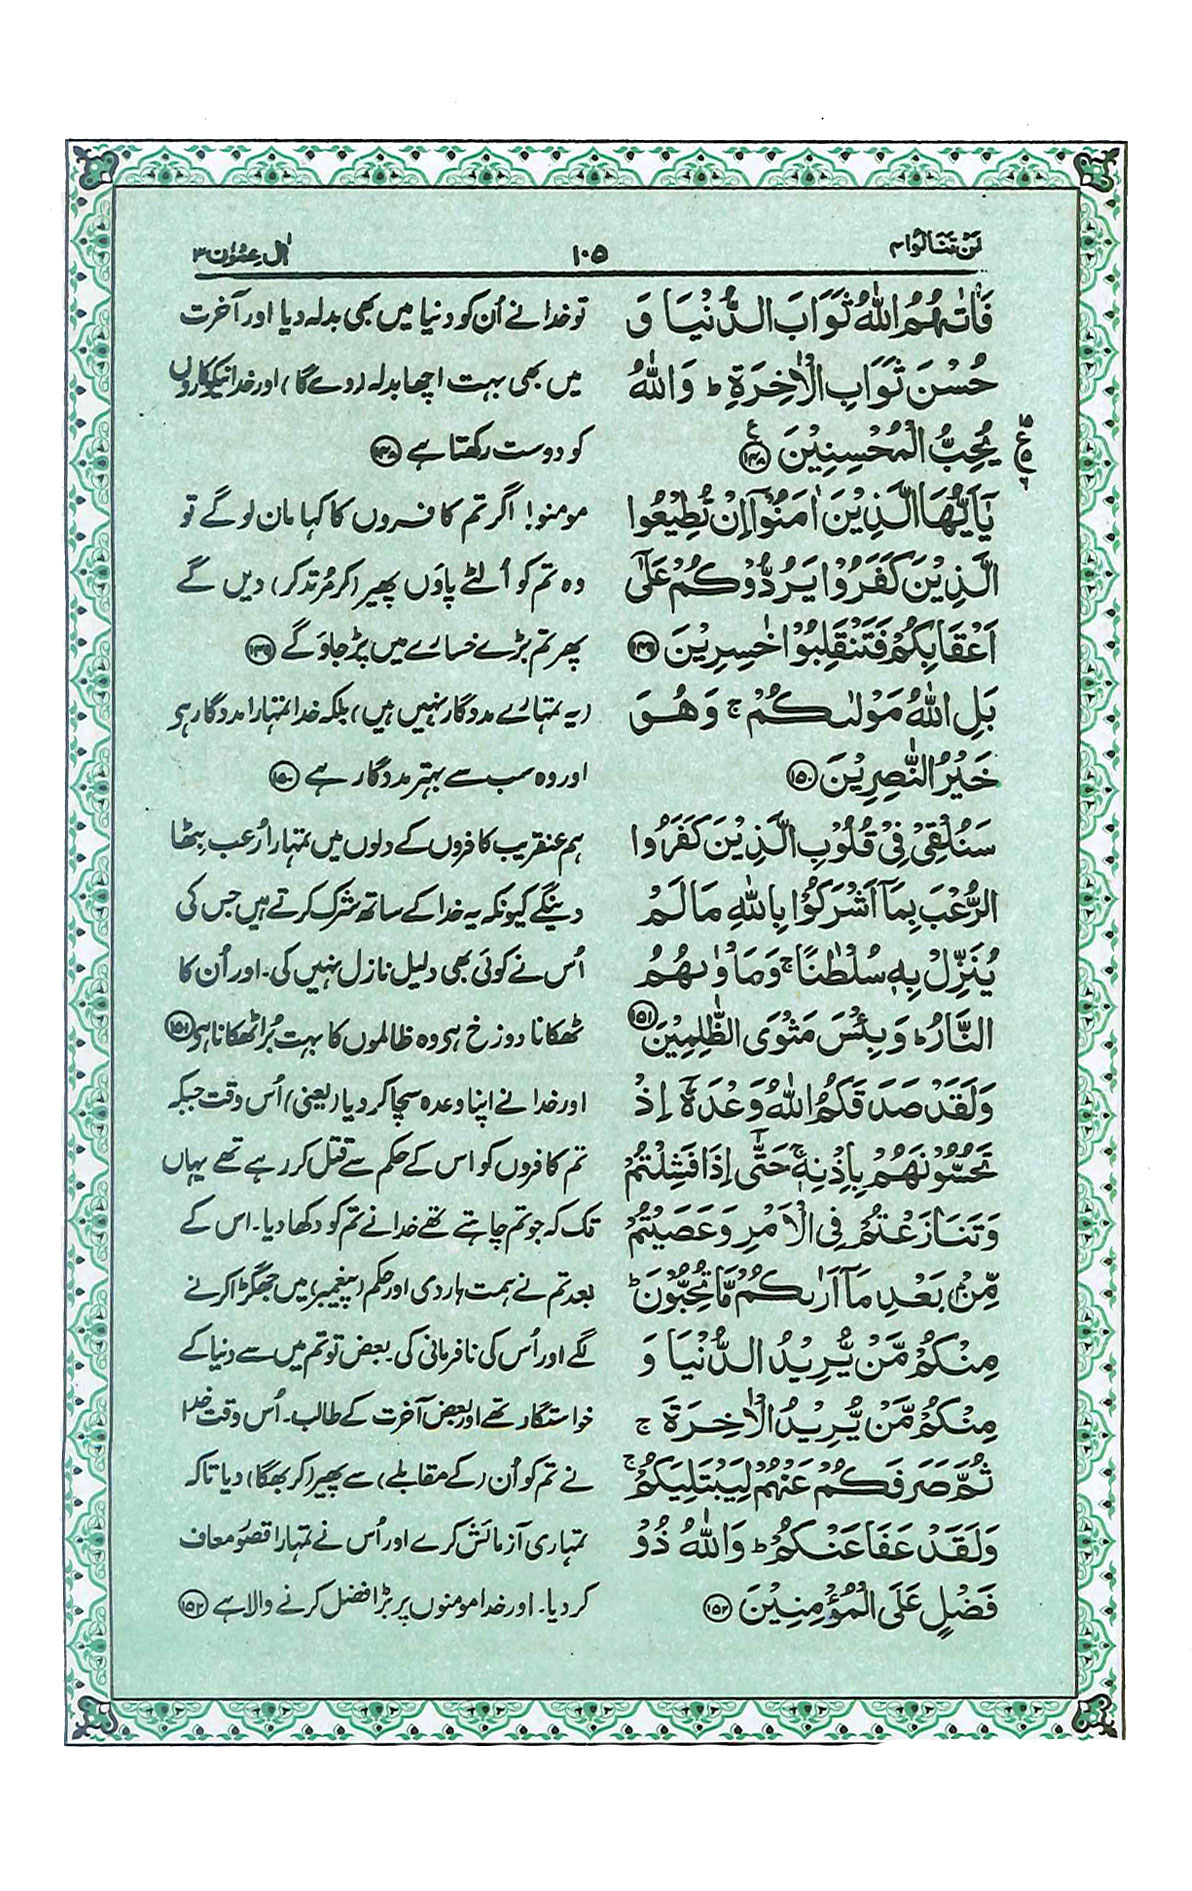 لَنْ تَنَالُوا ۴
۱۰۵
اٰل عِمْرٰن ۳
فَاٰتٰىهُمُ اللّٰهُ ثَوَابَ الدُّنْيَا وَ
حُسْنَ ثَوَابِ الْاٰخِرَةِ ؕ وَاللّٰهُ
يُحِبُّ الْمُحْسِنِيْنَ ﴿۱۴۸﴾ ع
يٰٓاَيُّهَا الَّذِيْنَ اٰمَنُوْٓا اِنْ تُطِيْعُوا
الَّذِيْنَ كَفَرُوْا يَرُدُّوْكُمْ عَلٰٓى
اَعْقَابِكُمْ فَتَنْقَلِبُوْا خٰسِرِيْنَ ﴿۱۴۹﴾
بَلِ اللّٰهُ مَوْلٰىكُمْ ۚ وَهُوَ
خَيْرُ النّٰصِرِيْنَ ﴿۱۵۰﴾
سَنُلْقِيْ فِيْ قُلُوْبِ الَّذِيْنَ كَفَرُوا
الرُّعْبَ بِمَآ اَشْرَكُوْا بِاللّٰهِ مَا لَمْ
يُنَزِّلْ بِهٖ سُلْطٰنًا ۚ وَمَاْوٰىهُمُ
النَّارُ ؕ وَبِئْسَ مَثْوَى الظّٰلِمِيْنَ ﴿۱۵۱﴾
وَلَقَدْ صَدَقَكُمُ اللّٰهُ وَعْدَهٗٓ اِذْ
تَحُسُّوْنَهُمْ بِاِذْنِهٖ ۚ حَتّٰٓى اِذَا فَشِلْتُمْ
وَتَنَازَعْتُمْ فِى الْاَمْرِ وَعَصَيْتُمْ
مِّنْۢ بَعْدِ مَآ اَرٰىكُمْ مَّا تُحِبُّوْنَ ؕ
مِنْكُمْ مَّنْ يُّرِيْدُ الدُّنْيَا وَ
مِنْكُمْ مَّنْ يُّرِيْدُ الْاٰخِرَةَ ۚ
ثُمَّ صَرَفَكُمْ عَنْهُمْ لِيَبْتَلِيَكُمْ ۚ
وَلَقَدْ عَفَا عَنْكُمْ ؕ وَاللّٰهُ ذُوْ
فَضْلٍ عَلَى الْمُؤْمِنِيْنَ ﴿۱۵۲﴾
تو خدا نے اُن کو دنیا میں بھی بدلہ دیا اور آخرت
میں بھی بہت اچھا بدلہ (دے گا) اور خدا نیکوکاروں
کو دوست رکھتا ہے ﴿۱۴۸﴾
مومنو! اگر تم کافروں کا کہا مان لو گے تو
وہ تم کو اُلٹے پاؤں پھیر (کر مُرتد کر) دیں گے
پھر تم بڑے خسارے میں پڑ جاؤ گے ﴿۱۴۹﴾
(یہ تمہارے مددگار نہیں ہیں) بلکہ خدا تمہارا مددگار ہی
اور وہ سب سے بہتر مددگار ہے ﴿۱۵۰﴾
ہم عنقریب کافروں کے دلوں میں تمہارا رُعب بٹھا
دینگے کیونکہ یہ خدا کے ساتھ شرک کرتے ہیں جس کی
اُس نے کوئی بھی دلیل نازل نہیں کی۔ اور اُن کا
ٹھکانا دوزخ ہی وہ ظالموں کا بہت بُرا ٹھکانا ہی ﴿۱۵۱﴾
اور خدا نے اپنا وعدہ سچا کر دیا (یعنی) اُس وقت جبکہ
تم کافروں کو اس کے حکم سے قتل کر رہے تھے یہاں
تک کہ جو تم چاہتے تھے خدا نے تم کو دکھا دیا۔ اس کے
بعد تم نے ہمت ہار دی اور حکم (پیغمبر) میں جھگڑا کرنے
لگے اور اُس کی نافرمانی کی۔ بعض تو تم میں سے دنیا کے
خواستگار تھے اور بعض آخرت کے طالب۔ اُس وقت خدا
نے تم کو اُن (کے مقابلے) سے پھیر (کر بھگا) دیا تاکہ
تمہاری آزمائش کرے اور اُس نے تمہارا قصور معاف
کر دیا۔ اور خدا مومنوں پر بڑا فضل کرنے والا ہے ﴿۱۵۲﴾